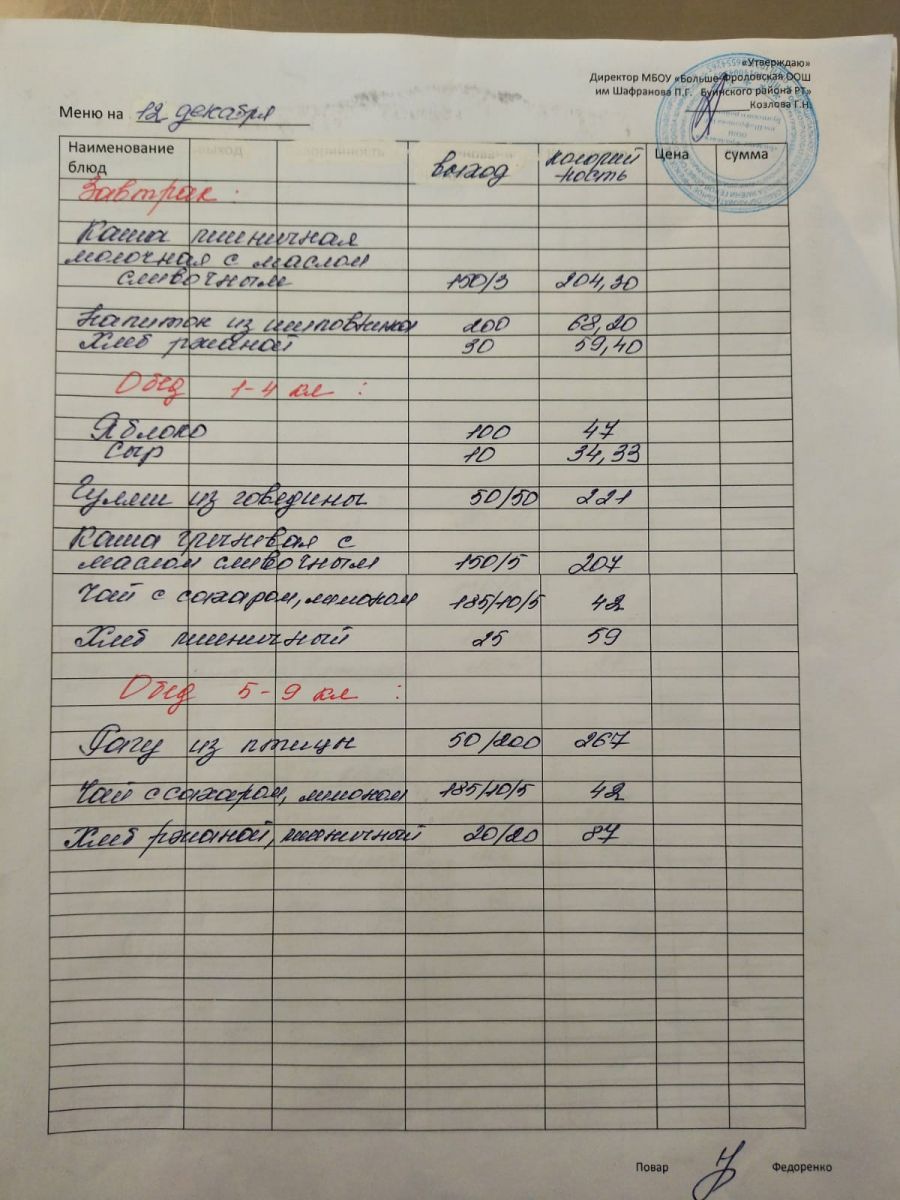 «Утверждаю»
Директор МБОУ «Больше-Фроловская ООШ
им Шафранова П.Г. Буинского района РТ»
Козлова Г.Н.
Меню на 12 декабря
Наименование блюд выход калорийность Цена сумма
Завтрак :
Каша пшеничная
молочная с маслом
сливочным 150/3 204,30
Напиток из шиповника 200 68,20
Хлеб ржаной 30 59,40
Обед 1-4 кл :
Яблоко 100 47
Сыр 10 34,33
Гуляш из говедины 50/50 221
Каша гречневая с
маслом сливочным 150/5 207
Чай с сахаром, лимоном 185/10/5 42
Хлеб пшеничный 25 59
Обед 5-9 кл :
Рагу из птицы 50/200 267
Чай с сахаром, лимоном 185/10/5 42
Хлеб ржаной, пшеничный 20/20 87
Повар Федоренко